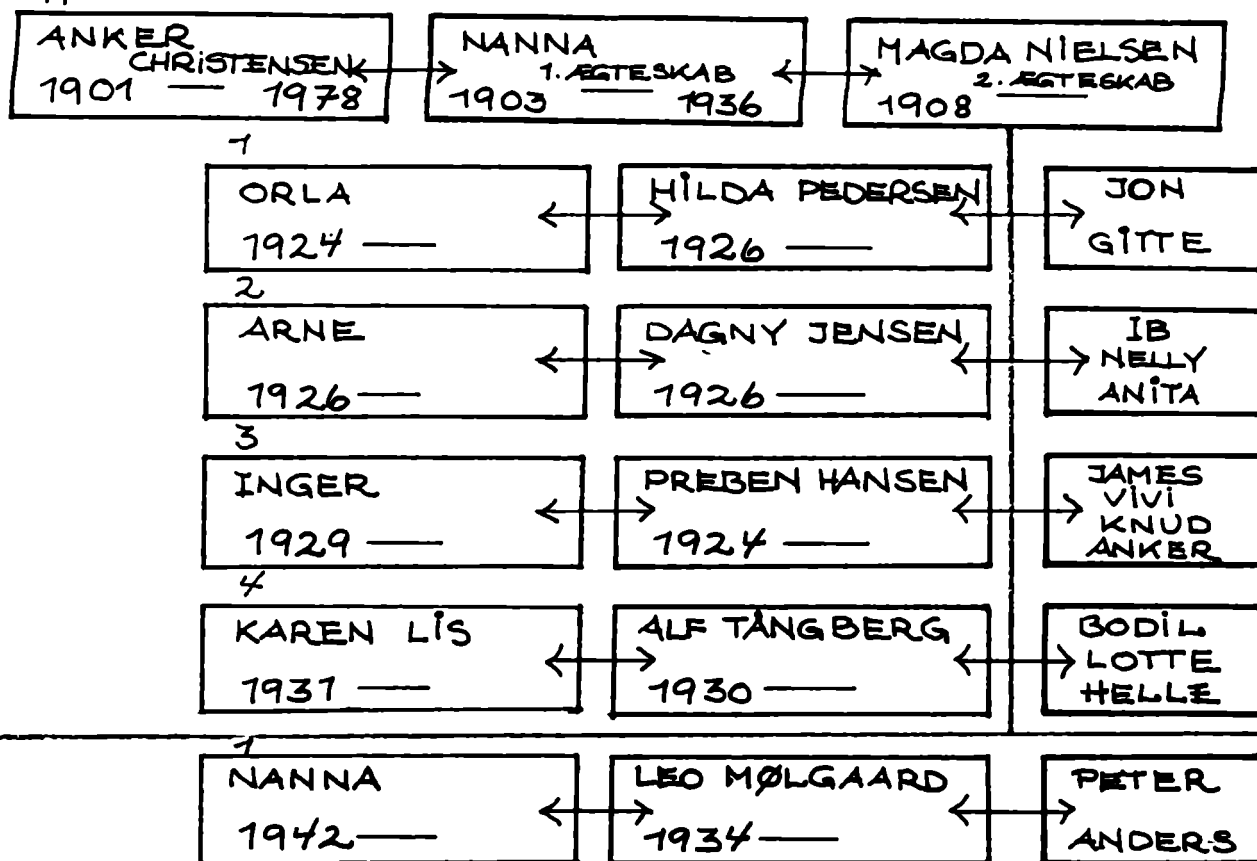 ANKER CHRISTENSEN
1901 — 1978
NANNA
1. ÆGTESKAB
1903 — 1936
MAGDA NIELSEN
2. ÆGTESKAB
1908 —
1
ORLA
1924 —
HILDA PEDERSEN
1926 —
JON
GITTE
2
ARNE
1926 —
DAGNY JENSEN
1926 —
IB
NELLY
ANITA
3
INGER
1929 —
PREBEN HANSEN
1924 —
JAMES
VIVI
KNUD
ANKER
4
KAREN LIS
1931 —
ALF TÅNGBERG
1930 —
BODIL
LOTTE
HELLE
1
NANNA
1942 —
LEO MØLGAARD
1934 —
PETER
ANDERS